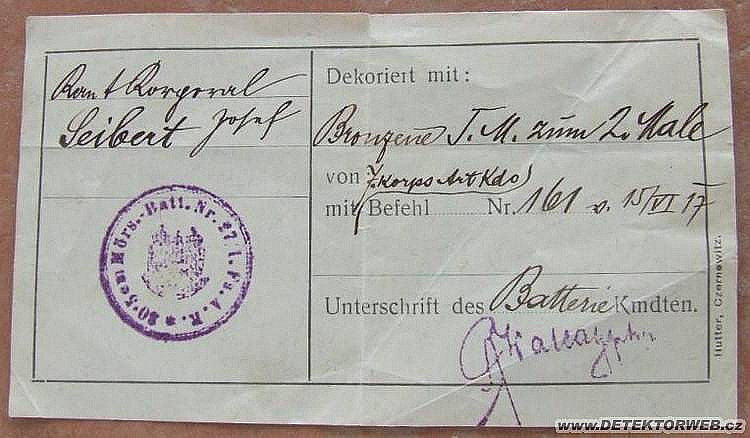 Kant Korporal
Seibert Josef
30·5 cm Mörs.-Batt. Nr. 27 / 1. Fs. A. R.
Dekoriert mit:
Bronzene T. M. zum 2. Male
von 7. Korps Art Kdo
mit Befehl Nr. 161 v. 15/VI 17
Unterschrift des Batterie Kmdten.
Hutter, Czernowitz.
www.DETEKTORWEB.cz